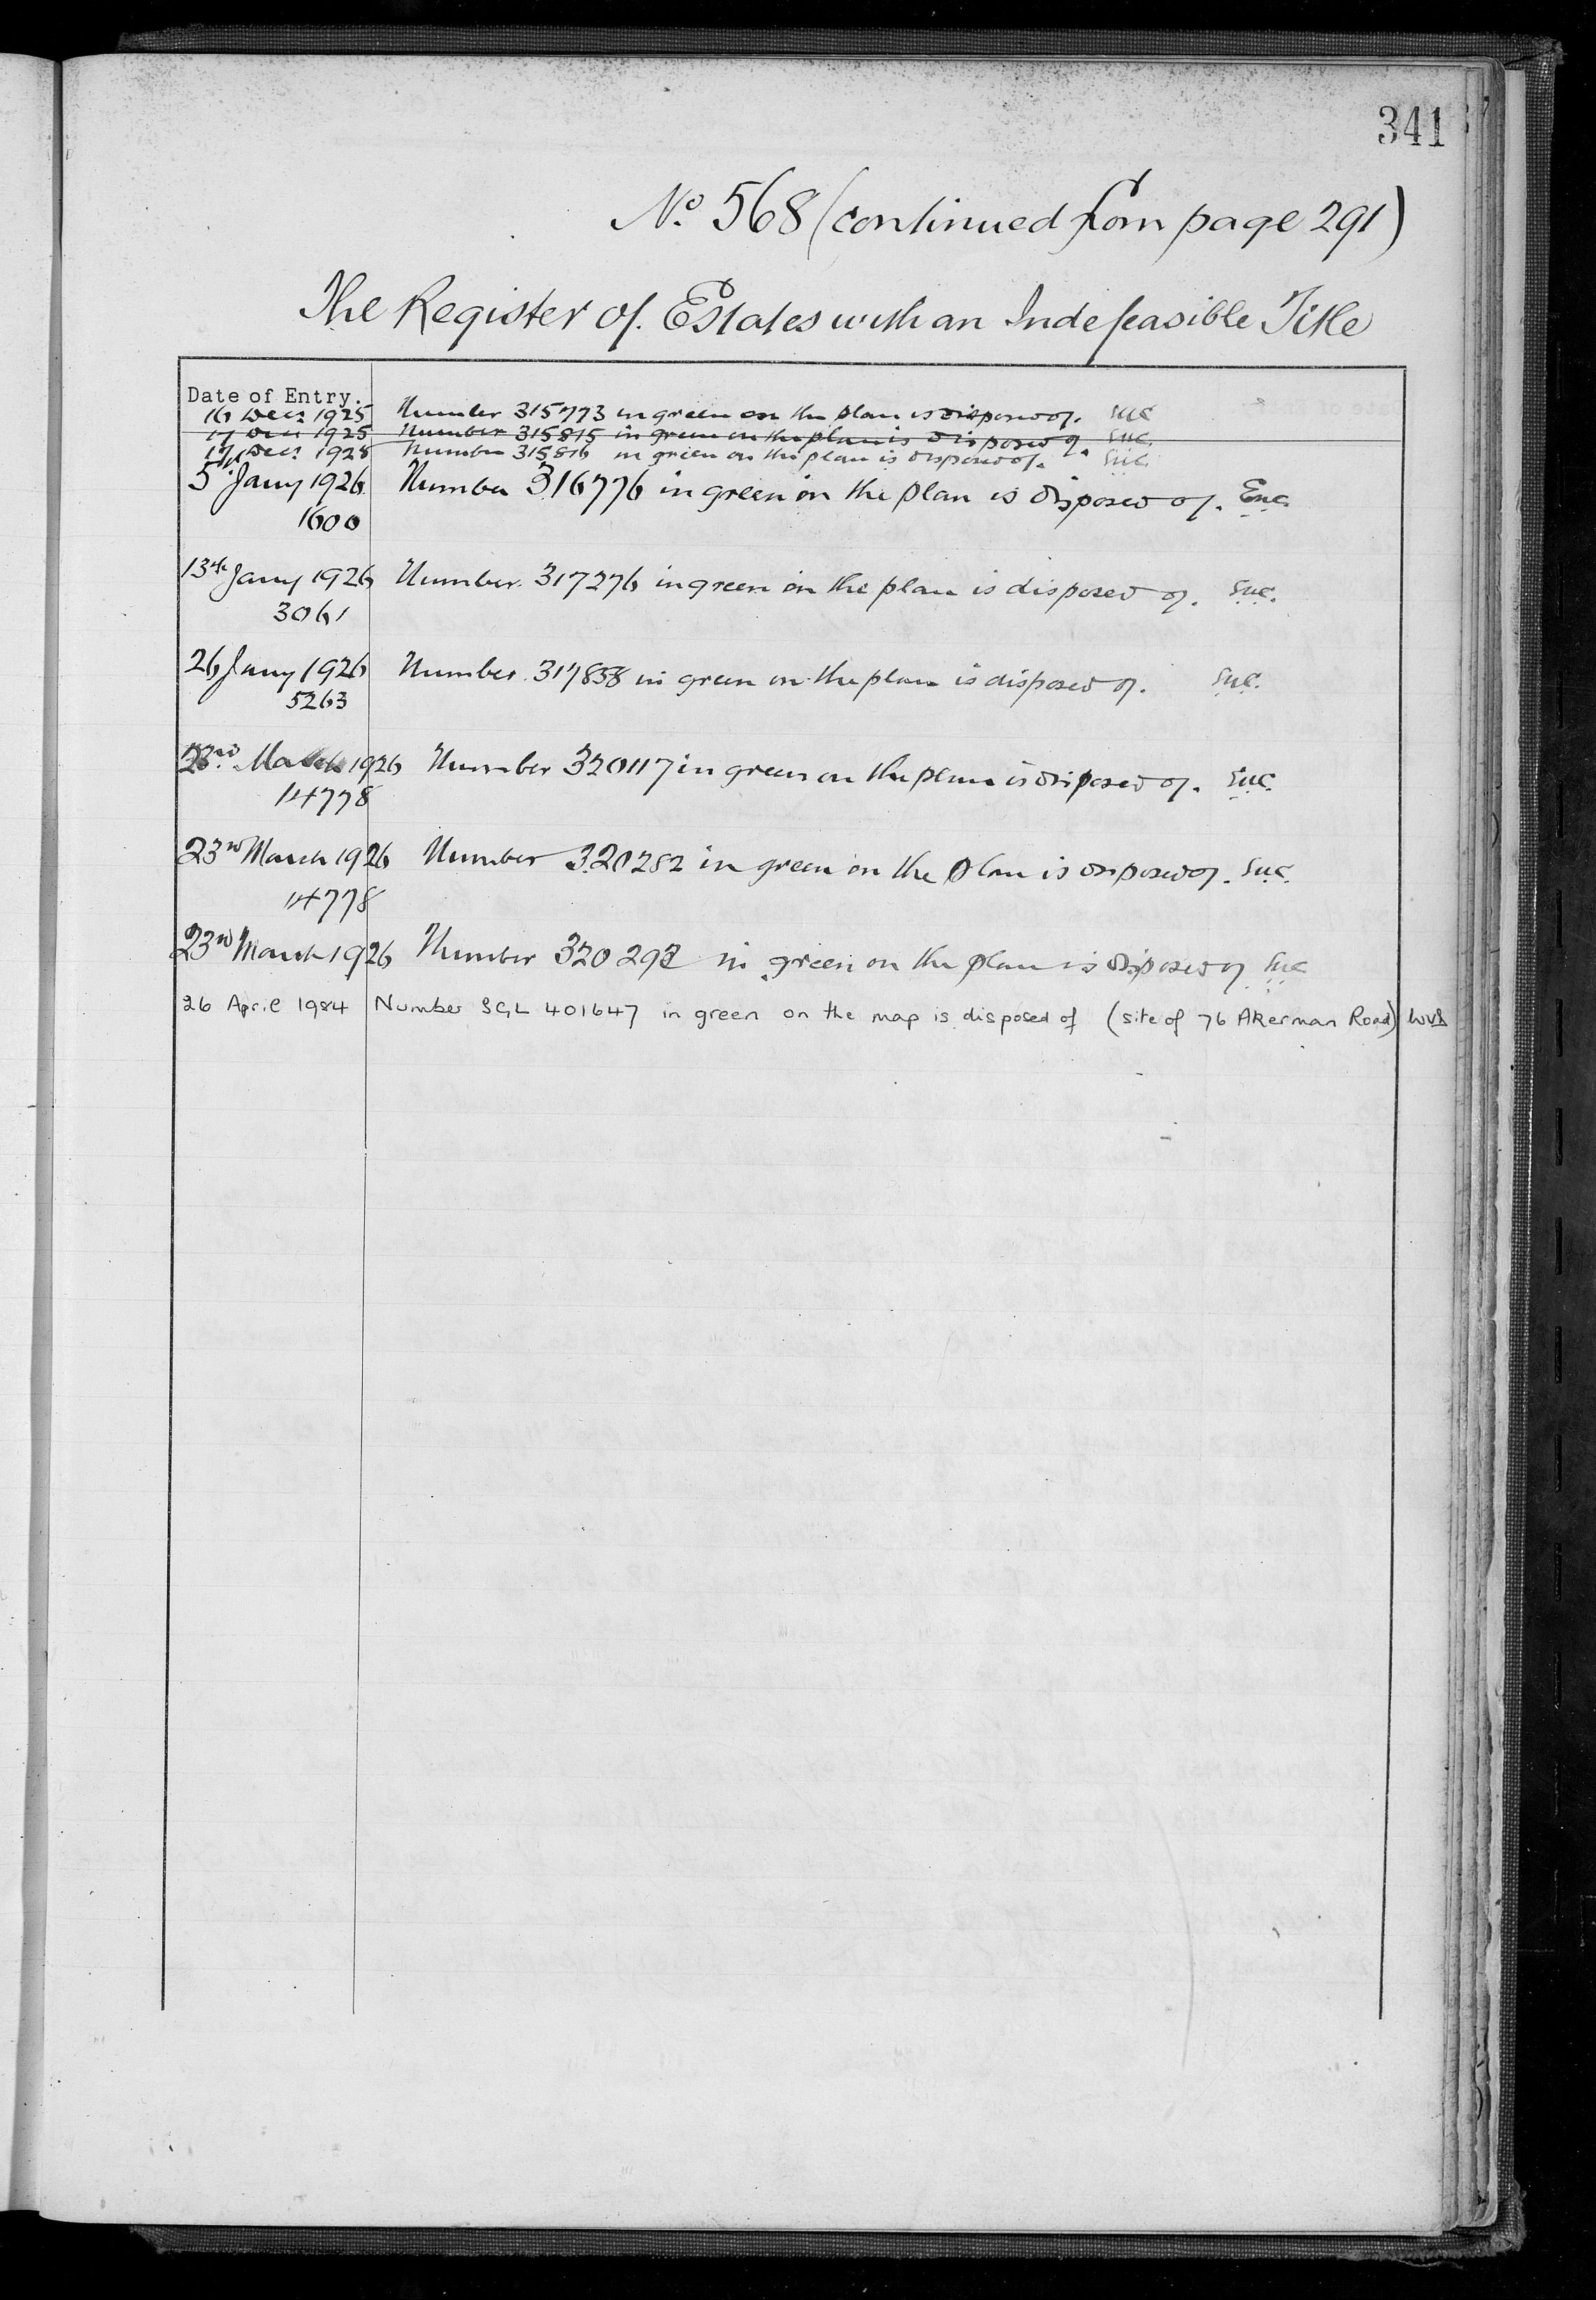 341
No. 568 (continued from page 291)
The Register of Estates with an Indefeasible Title
Date of Entry.
16 Decr 1925 Number 315773 in green on the plan is disposed of.
17 Decr 1925 Number 315815 in green on the plan is disposed of.
17 Decr 1925 Number 315816 in green on the plan is disposed of.
5th Jany 1926 Number 316776 in green on the plan is disposed of.
1600
13th Jany 1926 Number 317276 in green on the plan is disposed of.
3061
26 Jany 1926 Number 317838 in green on the plan is disposed of.
5263
23rd March 1926 Number 320117 in green on the plan is disposed of.
14778
23rd March 1926 Number 320282 in green on the plan is disposed of.
14778
23rd March 1926 Number 320293 in green on the plan is disposed of
26 April 1984 Number SGL 401647 in green on the map is disposed of (site of 76 Akerman Road)